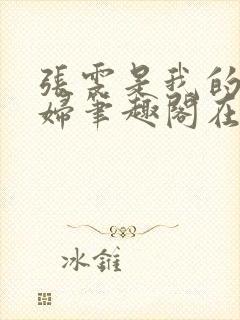 張雲是我的
婦筆趣閣在
冰錐